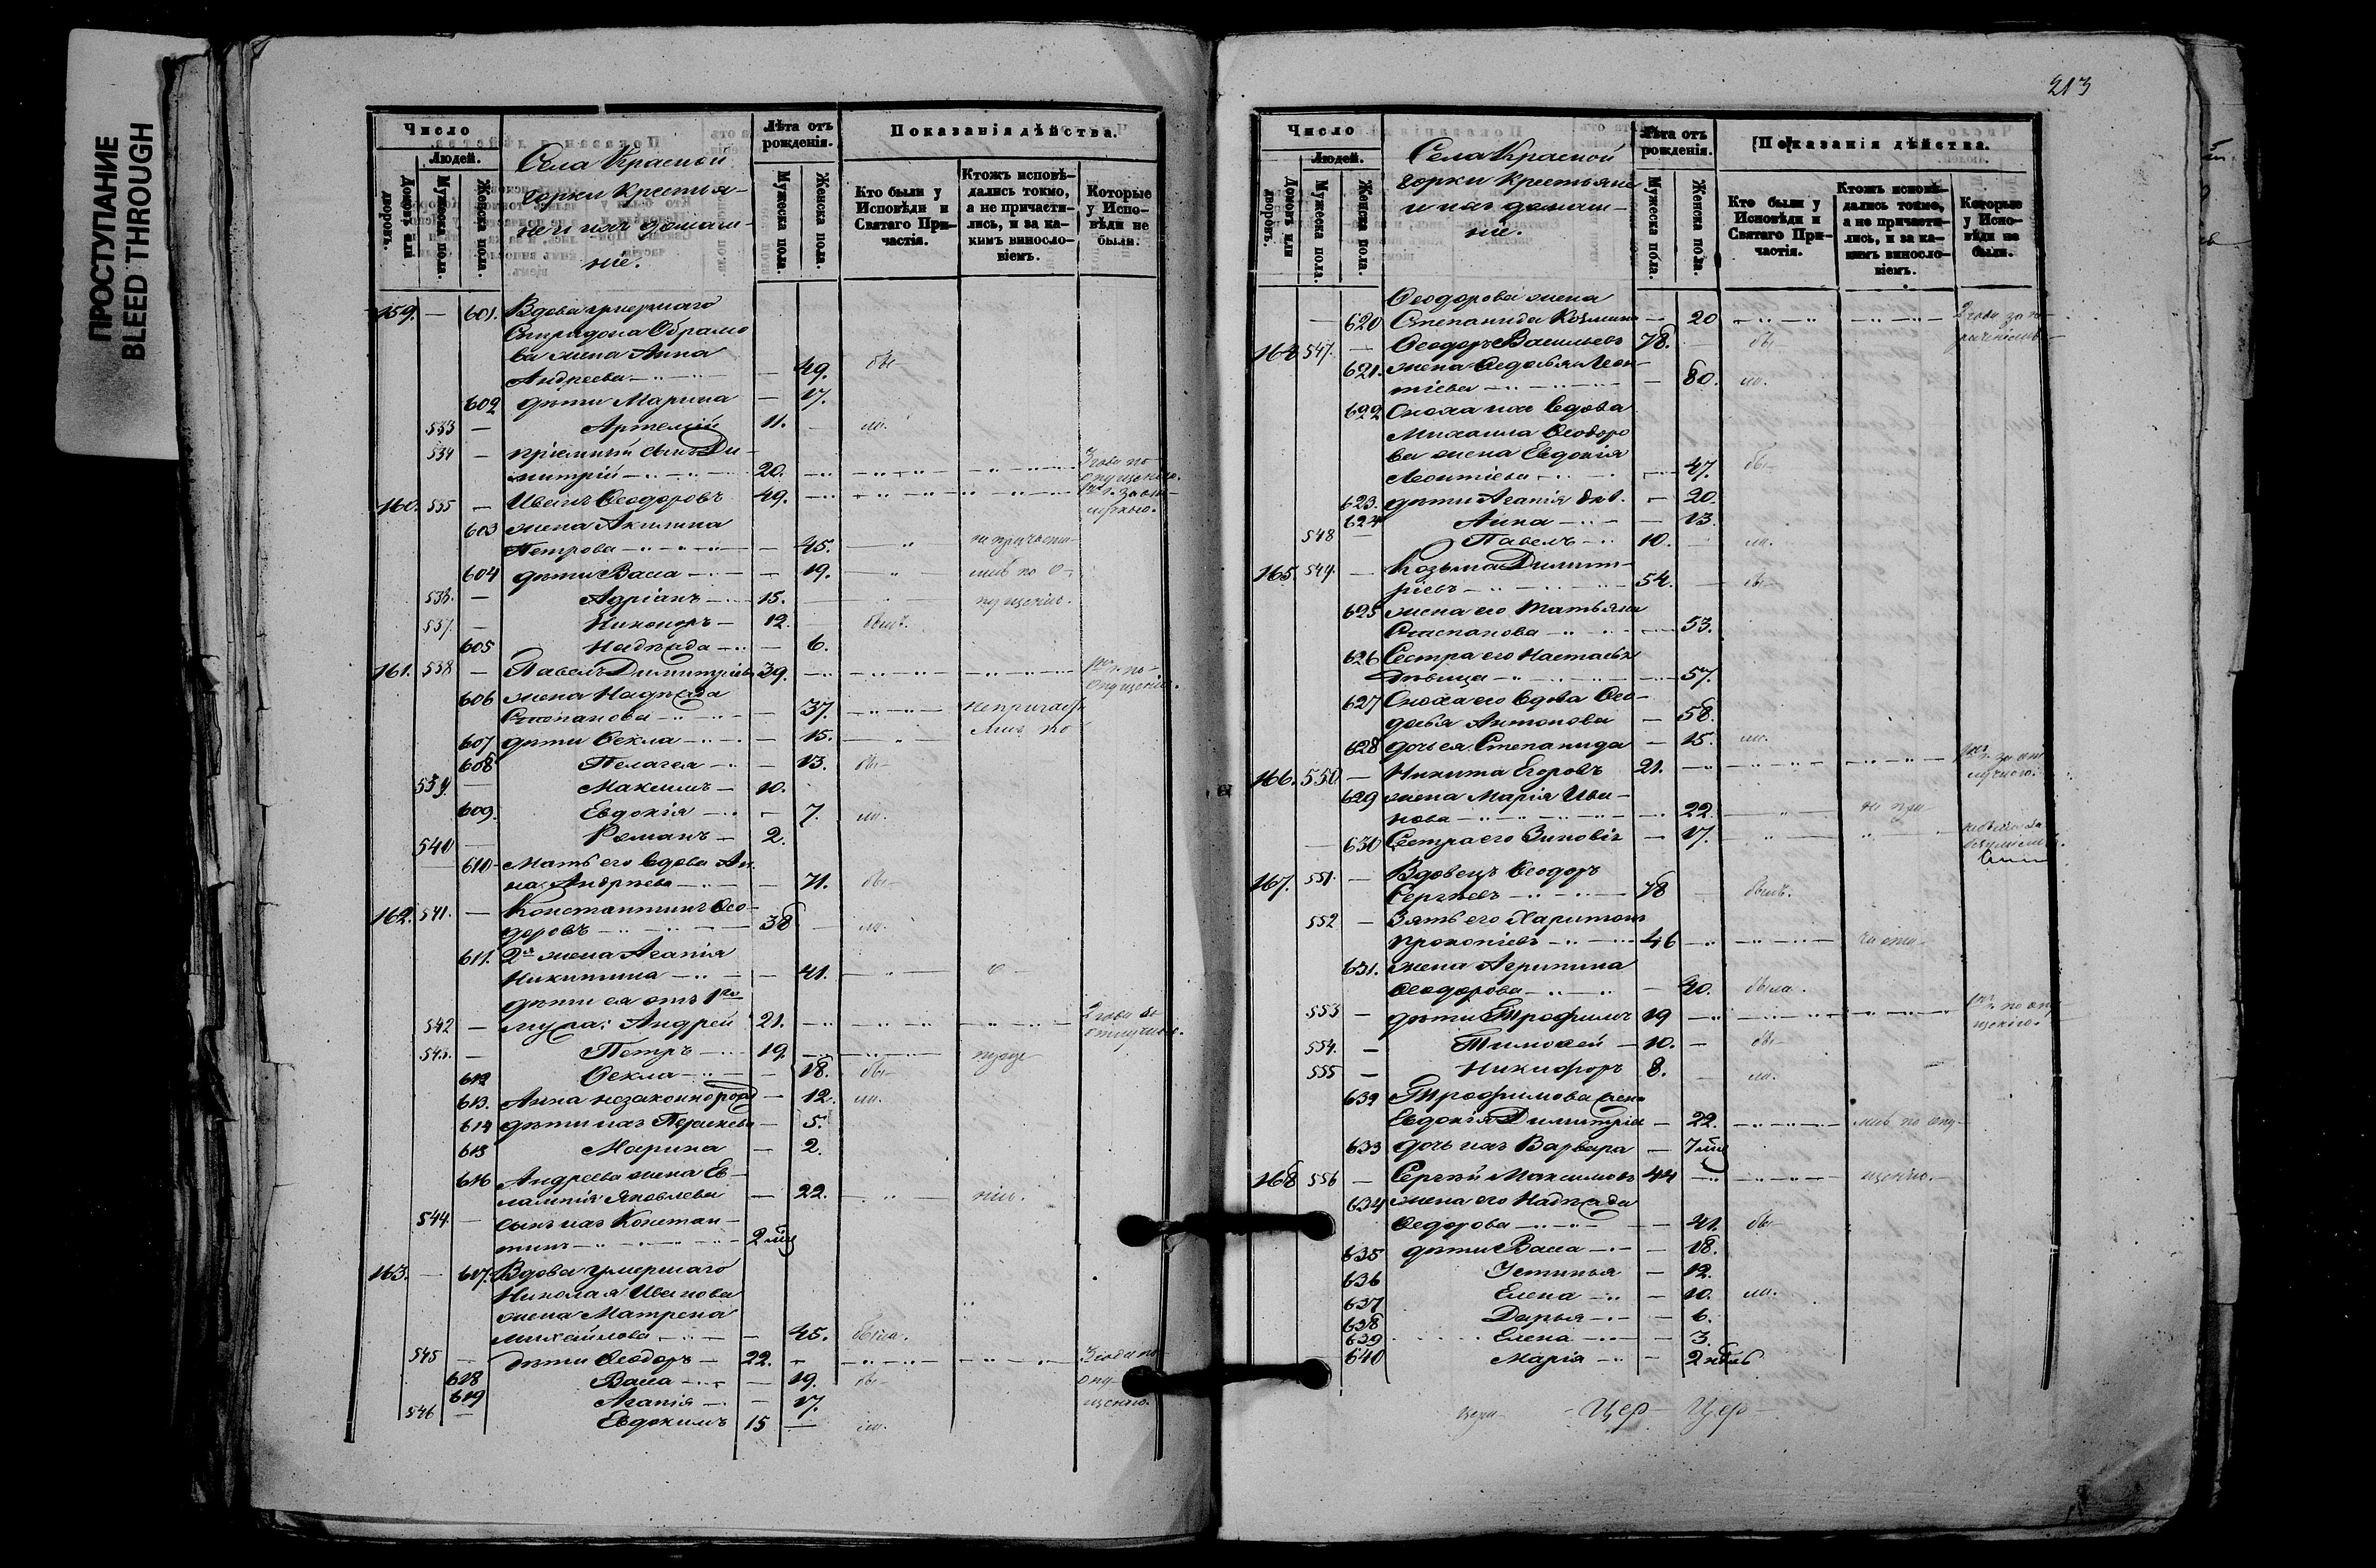 ПРОСТУПАНИЕ
BLEED THROUGH
Число
Людей.
Домовъ или дворовъ.
Мужеска пола.
Женска пола.
Села Красной
горки крестья-
не и ихъ домаш-
ніе.
Лѣта отъ рожденія.
Мужеска пола.
Женска пола.
Показанія дѣйства.
Кто были у Исповѣди и Святаго Причастія.
Ктожъ исповѣдались токмо, а не причастились, и за какимъ винословіемъ.
Которые у Исповѣди не были.
159. — 601. Вдова умершаго
Спиридона Абрамо
ва жена Анна
Андреева — 49. бы-
602 дѣти Марина — 17.
533 — Артемій 11. ла.
534 — пріемный сынъ Ди-
митрій 20. 3 года по
опущенію.
160. 535 — Иванъ Ѳеодоровъ 49.
603 жена Акилина
Петрова — 45. не причасти-
604 дѣти Васса — 19. лись по о-
536. — Адріанъ 15. пущенію.
537. — Никаноръ 12. былъ.
605 Надежда — 6.
161. 538 — Павелъ Димитріевъ 39. по
опущенію.
606 жена Надежда
Степанова — 37. не причаст
607 дѣти Ѳекла — 15. лись по
608 Пелагея — 13. бы-
539. — Максимъ 10.
609. Евдокія — 7. ла.
540 — Романъ 2.
610 Мать его вдова Ан
на Андреева — 71. бы-
162. 541. — Константинъ Ѳео-
доровъ 38 ла.
611. 2я жена Агапія
Никитина — 41. о-
дѣти ея отъ 1го
542 — мужа: Андрей 21. 2 года по
543. — Петръ 19.
612 Ѳекла — 18. бы-
613. Анна незаконнорожд — 12. ла.
614 дѣти ихъ Параскева — 5.
615 Марина — 2.
616 Андреева жена Ев-
лампія Яковлева — 22. нію.
544. — сынъ ихъ Констан-
тинъ 2 мѣс
163. — 617. Вдова умершаго
Николая Иванова
жена Матрена
Михайлова — 45. была.
545 — дѣти Ѳеодоръ 22. 3 года по
618 Васса — 19. бы- опу-
619 Агапія — 17. щенію.
546 — Евдокимъ 15 — ла.
213
Число
Людей.
Домовъ или дворовъ.
Мужеска пола.
Женска пола.
Села Красной
горки крестьяне
и ихъ домаш-
ніе.
Лѣта отъ рожденія.
Мужеска пола.
Женска пола.
Показанія дѣйства.
Кто были у Исповѣди и Святаго Причастія.
Ктожъ исповѣдались токмо, а не причастились, и за какимъ винословіемъ.
Которые у Исповѣди не были.
Ѳеодорова жена
— 620 Степанида Козмина — 20 2 года за
164. 547. — Ѳеодоръ Васильевъ 78. бы-
621. жена Ѳедосья Леон-
тіева — 80. ла.
622 Сноха ихъ вдова
Михаила Ѳеодоро
ва жена Евдокія
Леонтіева — 47. бы-
623. дѣти Агапія дѣв. — 20.
624 Анна — 13.
548 — Павелъ 10. ла.
165. 549. — Козьма Димит-
ріевъ 54. бы-
625 жена его Татьяна
Степанова — 53.
626 Сестра его Настасья
дѣвица — 57.
627 Сноха его вдова Ѳео-
досья Антонова — 58.
628 дочь ея Степанида — 15. ла.
166. 550 — Никита Егоровъ 21.
629 жена Марія Ива-
нова — 22. не при
— 630 Сестра его Зиновія — 17.
167. 551. — Вдовецъ Ѳеодоръ
Сергѣевъ 78 былъ.
552 — Зять его Харитонъ
Прокопіевъ 46 часті-
631. жена Агрипина
Ѳеодорова — 40. была.
553 — дѣти Трофимъ 19 по опу
щенію.
554. — Тимоѳей 10. — бы-
555 — Никифоръ 8. ла.
632 Трофимова жена
Евдокія Димитріе — 22. лись по опу-
633 дочь ихъ Варвара — 7 мѣс
168 556 — Сергѣй Максимовъ 44 щенію.
634 жена его Надежда
Ѳедорова — 41. бы-
635 дѣти Васса — 18.
636 Устинья — 12.
637 Елена — 10. ла.
638 Дарья — 6.
639 Елена — 3
640 Марія — 2 нѣдль
Цер Цер